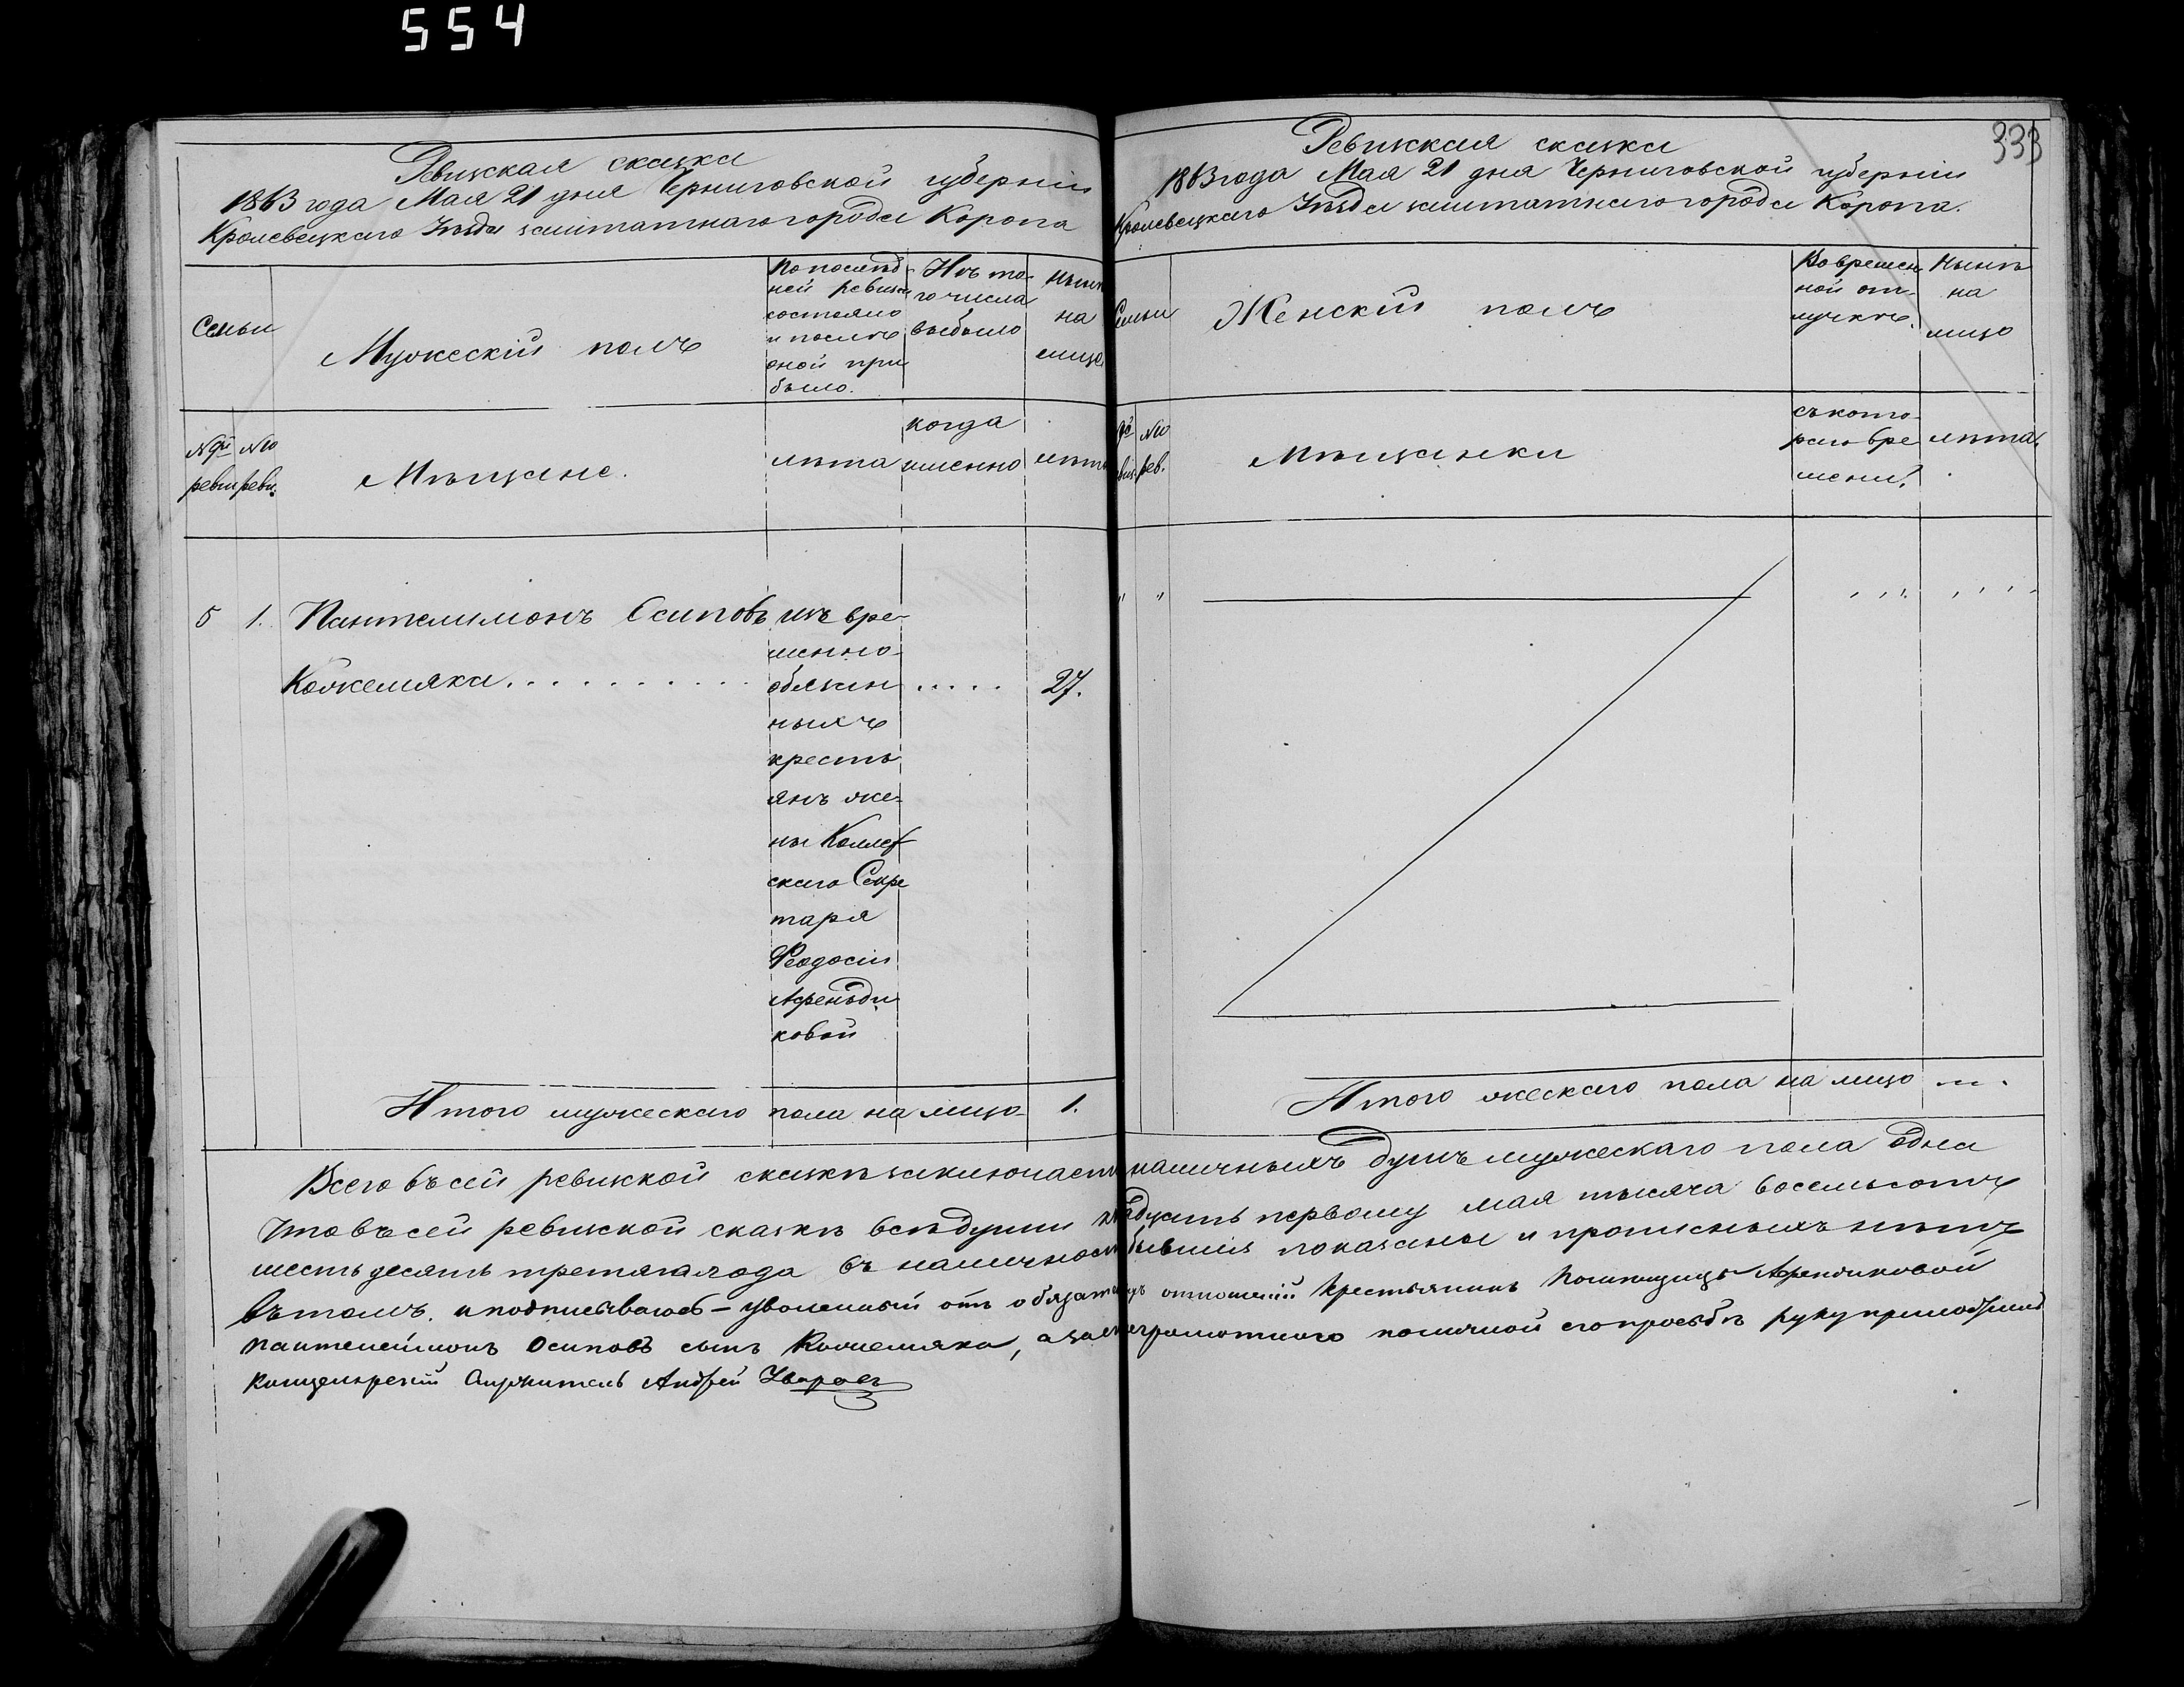 554
Ревизская сказка
1863 года Мая 21 дня Черниговской губерніи
Кролевецкаго Уѣзда заштатнаго города Коропа
Семьи
Мужескій полъ
По послѣд
ней ревизіи
состояло
и послѣ
оной при
было.
Изъ то-
го числа
выбыло
Нынѣ
на
лицо
ревиз
№
реви.
Мѣщане.
лѣта
когда
именно
лѣта
5 1. Пантелимонъ Осиповъ
Кожемяка . . . . . . . . . . 27.
изъ вре-
менно-
обязан
ныхъ
кресть
янъ же-
ны Коллеж
скаго Секре
таря
Феодосіи
Афенди
ковой
Итого мужескаго пола на лицо 1.
333
Ревизская сказка
1863 года Мая 21 дня Черниговской губерніи
Кролевецкаго Уѣзда заштатнаго города Коропа.
Семьи
Женскій полъ
Во времен
ной от-
лучкѣ.
Нынѣ
на
лицо
№
рев.
Мѣщанки
съ кото-
раго вре
мени?
лѣта.
Итого женскаго пола на лицо
Всего въ сей ревизской сказкѣ заключается наличныхъ душъ мужескаго пола одна
Что въ сей ревизской сказкѣ всѣ души по первому мая тысяча восемьсотъ
шестьдесятъ третяго года въ наличности бывшія показаны и прописныхъ нѣтъ
въ томъ и подписываюсь – уволенный отъ обязат отношеній крестьянинъ помѣщицы Афендиковой
Пантелеймонъ Осиповъ сынъ Кожемяка, а за неграмотнаго по личной его прозьбѣ руку приложилъ
Канцелярскій Служитель Андрей Уваровъ